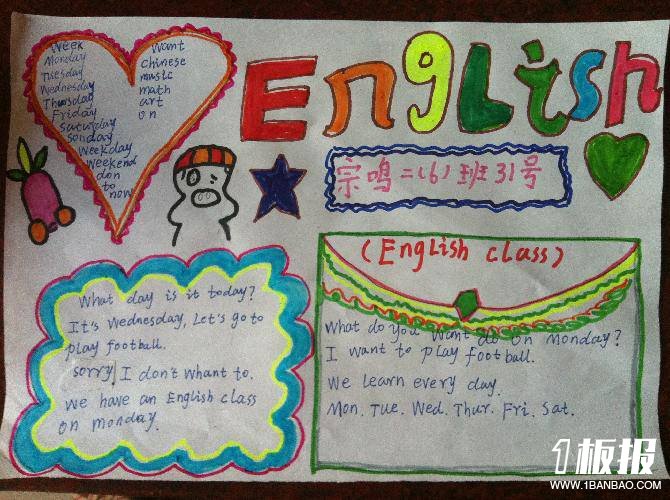 English
宗鸣二(6)班31号
Week
Monday
Tuesday
Wednesday
Thursday
Friday
Saturday
Sonday
Weekday
Weekend
don
to
now
Want
Chinese
music
math
art
on
What day is it today?
It's Wednesday, Let's go to
play football.
Sorry, I don't whant to.
We have an English class
on monday.
(English class)
What do you want do on monday?
I want to play football.
We learn every day.
Mon. Tue. Wed. Thur. Fri. Sat.
1板报
WWW.1BANBAO.COM